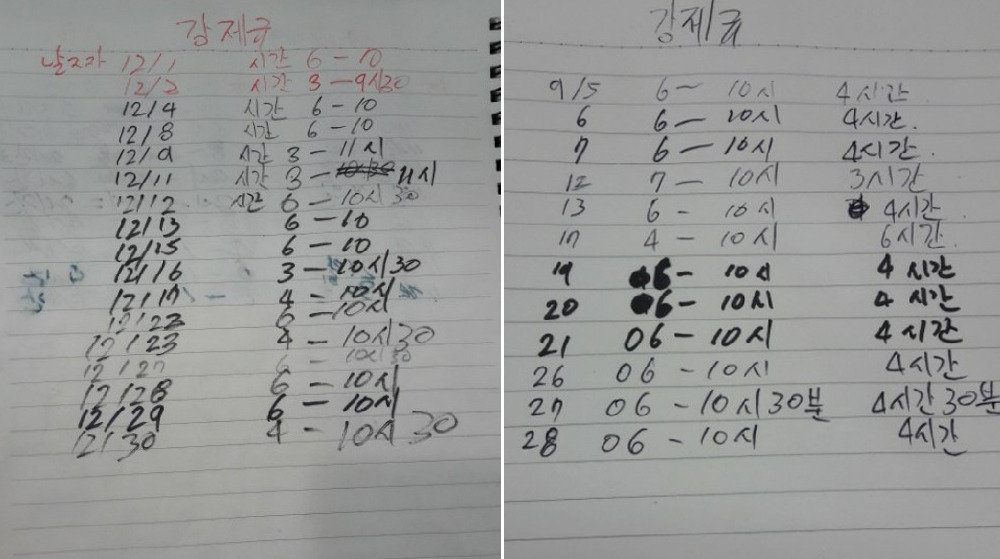 강제규
날자 12/1 시간 6-10
12/2 시간 3-9시30
12/4 시간 6-10
12/8 시간 6-10
12/9 시간 3-11시
12/11 시간 3- 11시
12/12 시간 6-10시30
12/13 6-10
12/15 6-10
12/16 3-10시30
12/17 4-10시
12/22 6-10시
12/23 4-10시30
12/27 6-10시30
12/28 6-10시
12/29 6-10시
12/30 4-10시30
강제규
9/5 6-10시 4시간
6 6-10시 4시간.
7 6-10시 4시간.
12 7-10시 3시간
13 6-10시 4시간
17 4-10시 6시간.
19 6-10시 4시간
20 6-10시 4시간
21 06-10시 4시간
26 06-10시 4시간
27 06-10시30분 4시간30분
28 06-10시 4시간